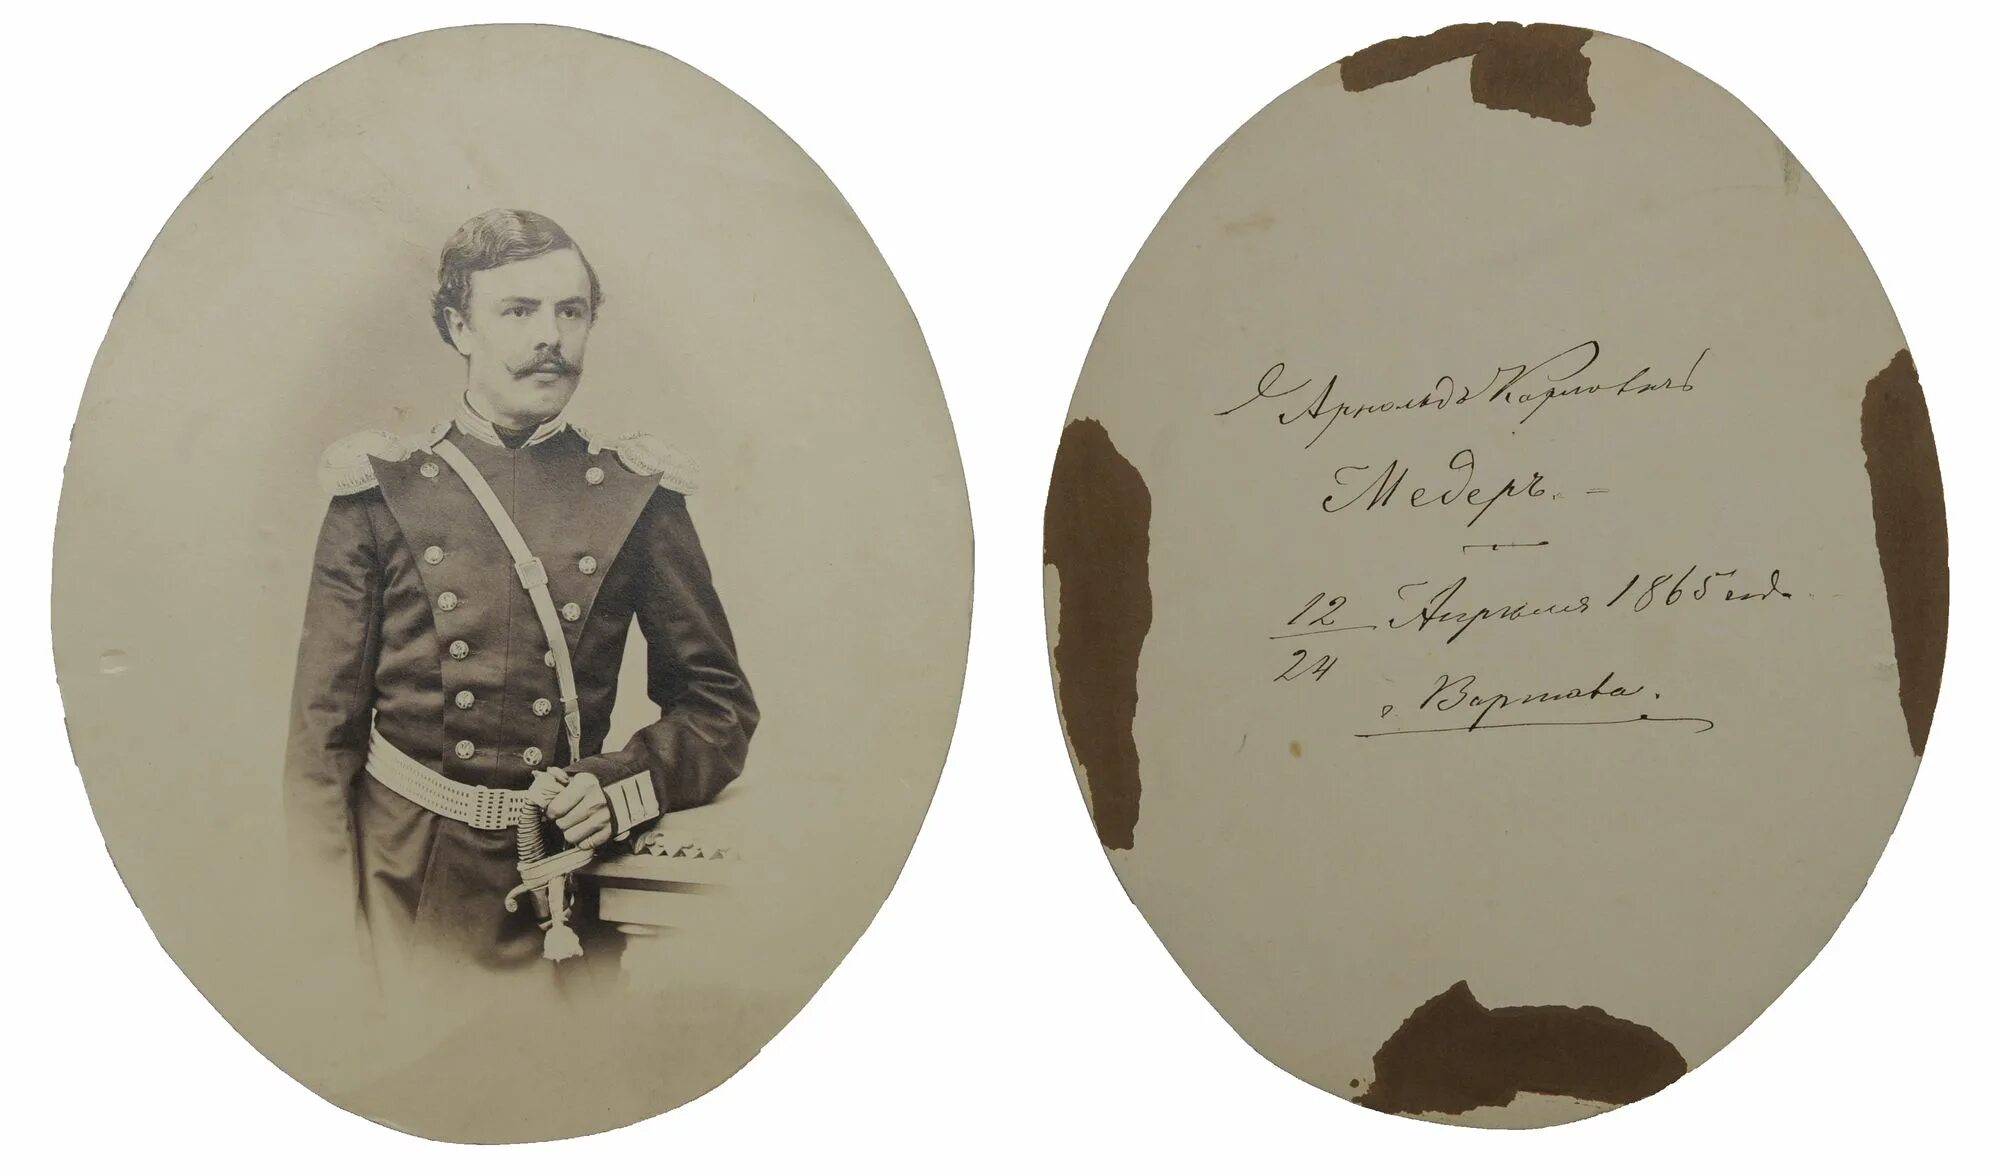 Арнольдъ Карловичъ
Медеръ. =
12 Апрѣля 1865 года
24
г. Варшава.